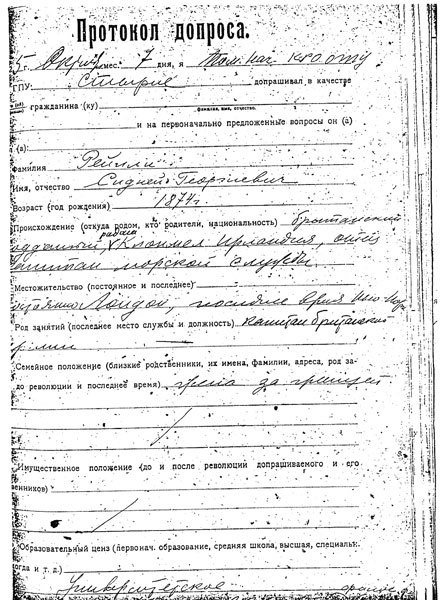 Протокол допроса.
5 г. Октяб. мес. 7 дня, я Пом. нач. КРО ОГПУ
ГПУ Стырне допрашивал в качестве
гражданина (ку)
фамилия, имя, отчество.
и на первоначально предложенные вопросы он (а)
(а):
фамилия Рейлли
Имя, отчество Сидней Георгиевич
Возраст (год рождения) 1874 г
Происхождение (откуда родом, кто родители, национальность) британский
подданный, родился Клонмел Ирландия, отец
капитан морской службы
Местожительство (постоянное и последнее)
Лондон, последнее время Нью Иорк
Род занятий (последнее место службы и должность) капитан британской
армии
Семейное положение (близкие родственники, их имена, фамилии, адреса, род за-
до революции и последнее время) жена за границей
Имущественное положение (до и после революции допрашиваемого и его
венников)
Образовательный ценз (первонач. образование, средняя школа, высшая, специальн.
когда и т. д.)
Университетское